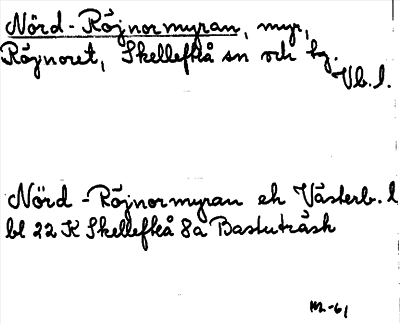 Nörd-Röjnormyran, myr,
Röjnoret, Skellefteå sn och hg.
Vb. l.
Nörd-Röjnormyran ek Västerb. l
bl 22 K Skellefteå 8a Bastuträsk
m.-61